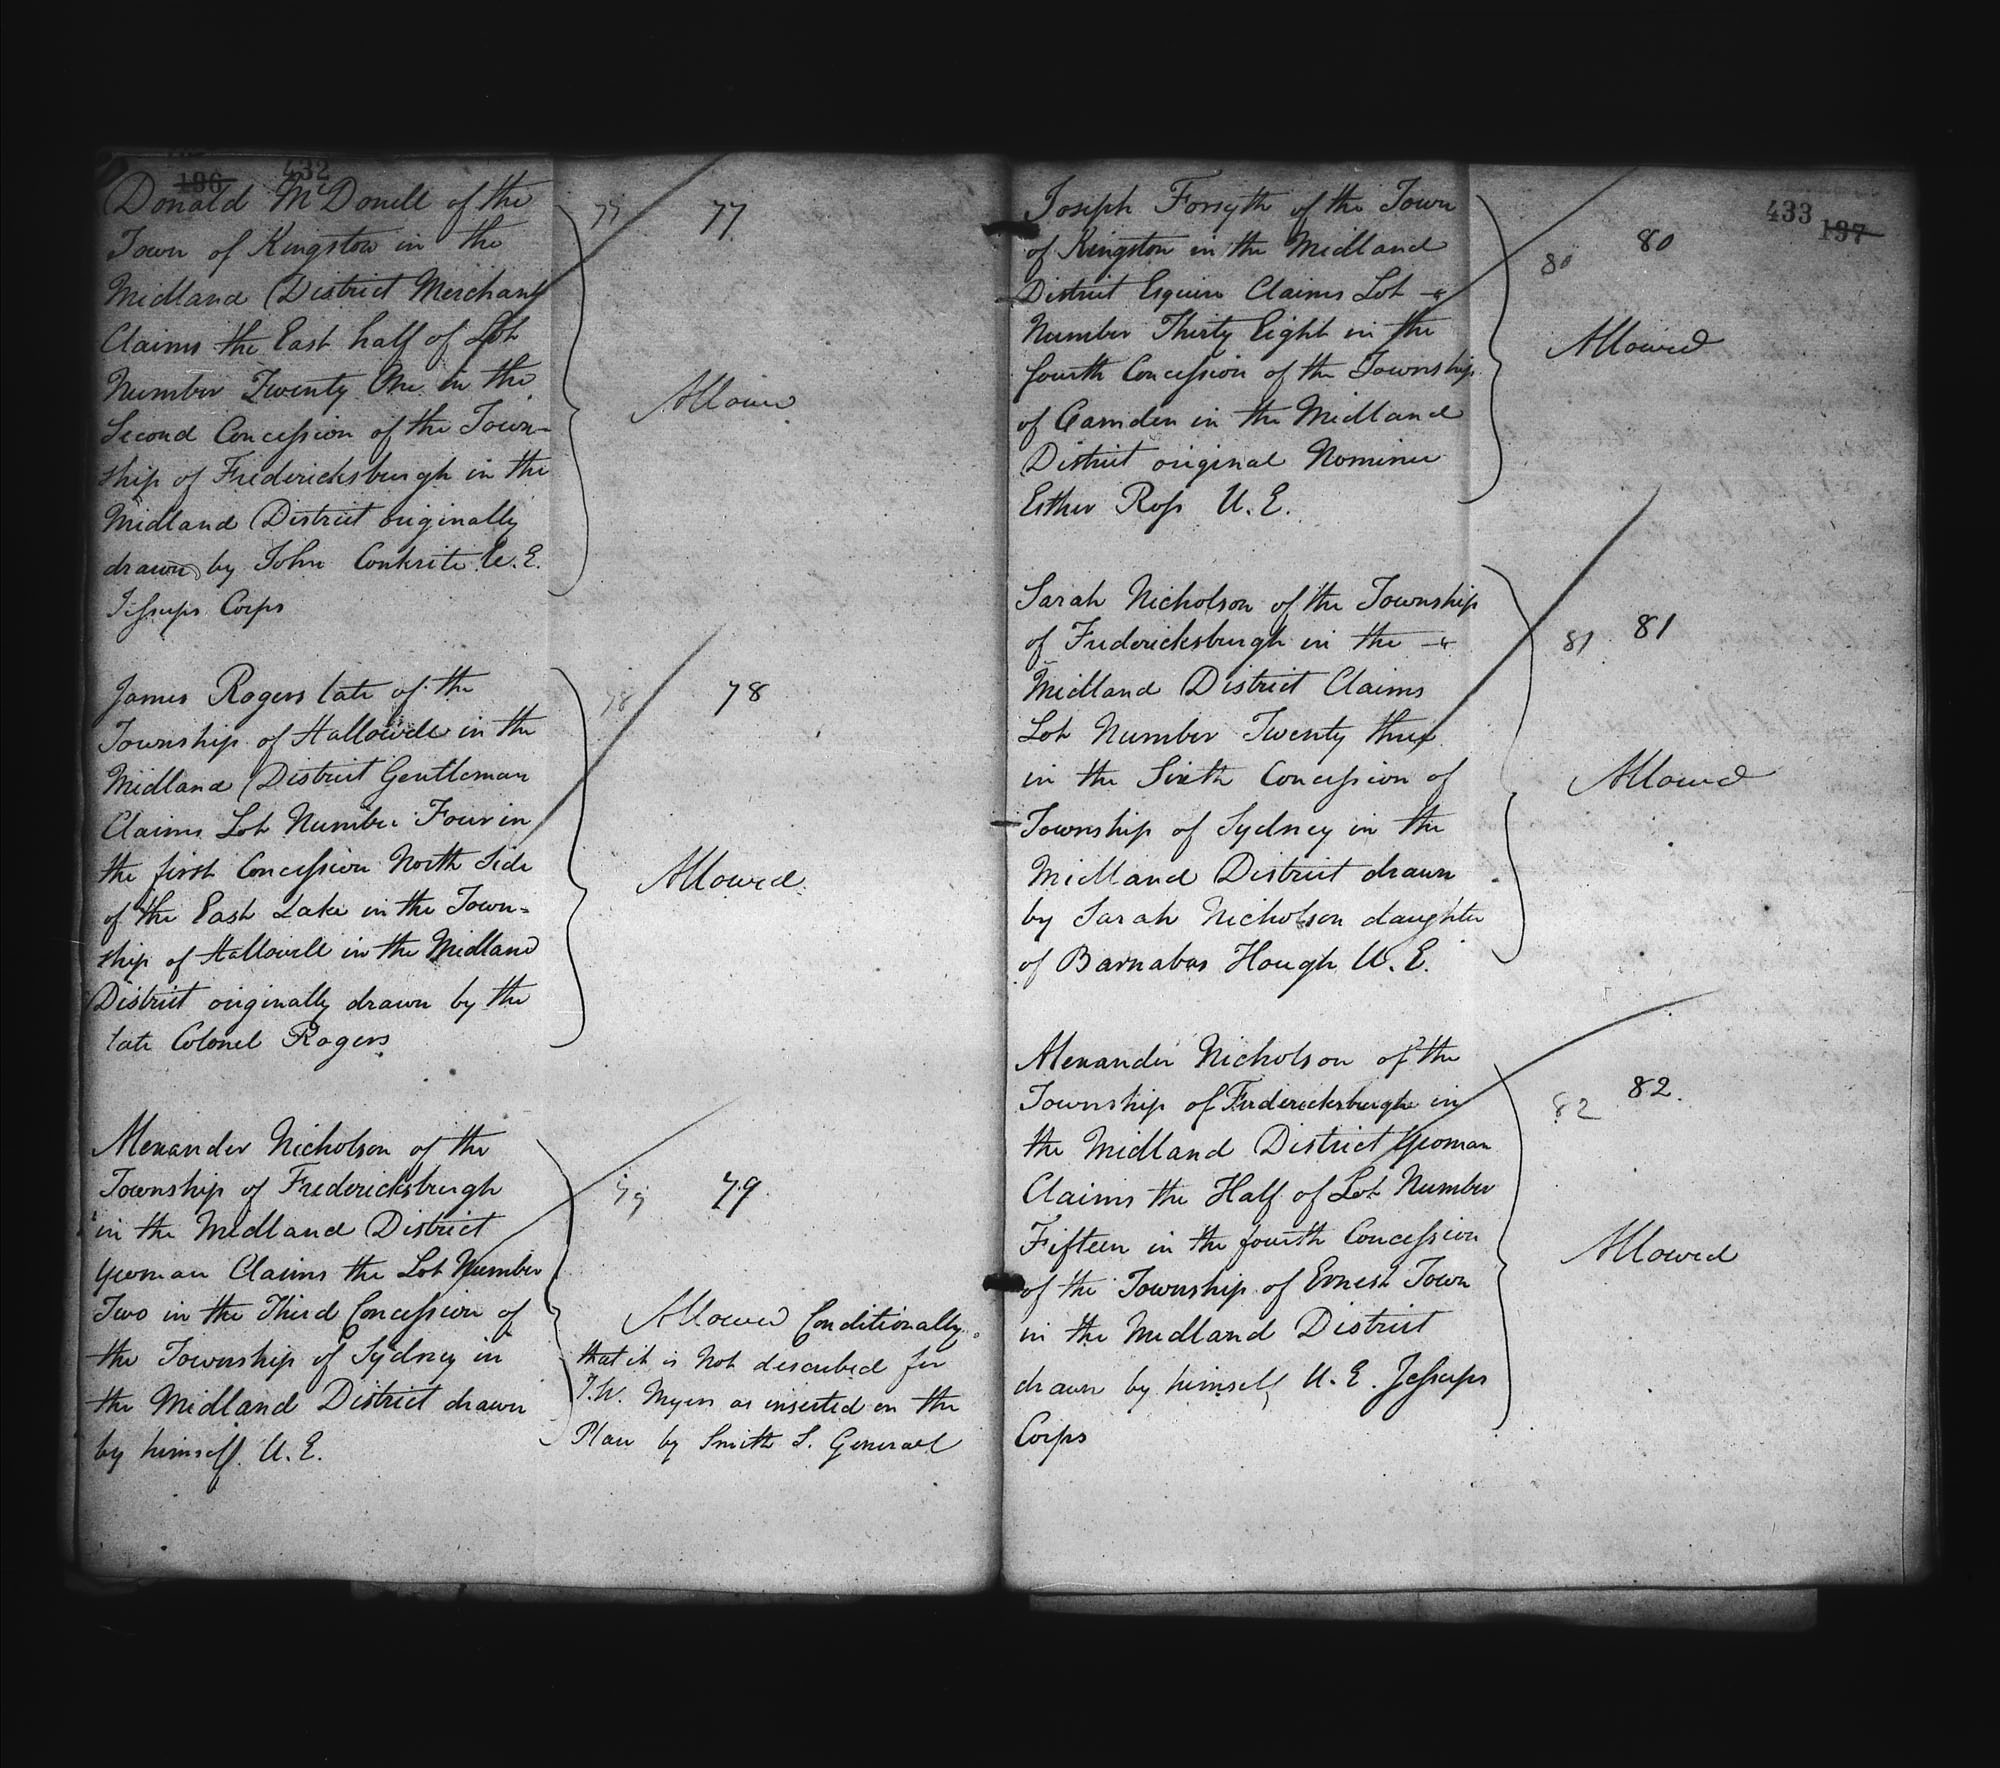 196 432
Donald McDonell of the
Town of Kingston in the
Midland District Merchant
Claims the East half of Lot
Number Twenty One in the
Second Concession of the Town-
ship of Fredericksburgh in the
Midland District originally
drawn by John Conksite U.E.
Jessups Corps
77 77
Allowed
James Rogers late of the
Township of Hallowell in the
Midland District Gentleman
Claims Lot Number Four in
the first Concession North Side
of the East Lake in the Town-
ship of Hallowell in the Midland
District originally drawn by the
late Colonel Rogers
78 78
Allowed
Alexander Nicholson of the
Township of Fredericksburgh
in the Midland District
Yeoman Claims the Lot Number
Two in the Third Concession of
the Township of Sydney in
the Midland District drawn
by himself U.E.
79 79
Allowed Conditionally
that it is not described for
Myers as inserted on the
Plan by Smith S. General
433 197
Joseph Forsyth of the Town
of Kingston in the Midland
District Esquire Claims Lot
Number Thirty Eight in the
fourth Concession of the Township
of Camden in the Midland
District original Nominee
Esther Ross U.E.
80 80
Allowed
Sarah Nicholson of the Township
of Fredericksburgh in the
Midland District Claims
Lot Number Twenty three
in the Sixth Concession of
Township of Sydney in the
Midland District drawn
by Sarah Nicholson daughter
of Barnabas Hough U.E.
81 81
Allowed
Alexander Nicholson of the
Township of Fredericksburgh in
the Midland District Yeoman
Claims the Half of Lot Number
Fifteen in the fourth Concession
of the Township of Ernest Town
in the Midland District
drawn by himself U.E. Jessups
Corps
82 82.
Allowed